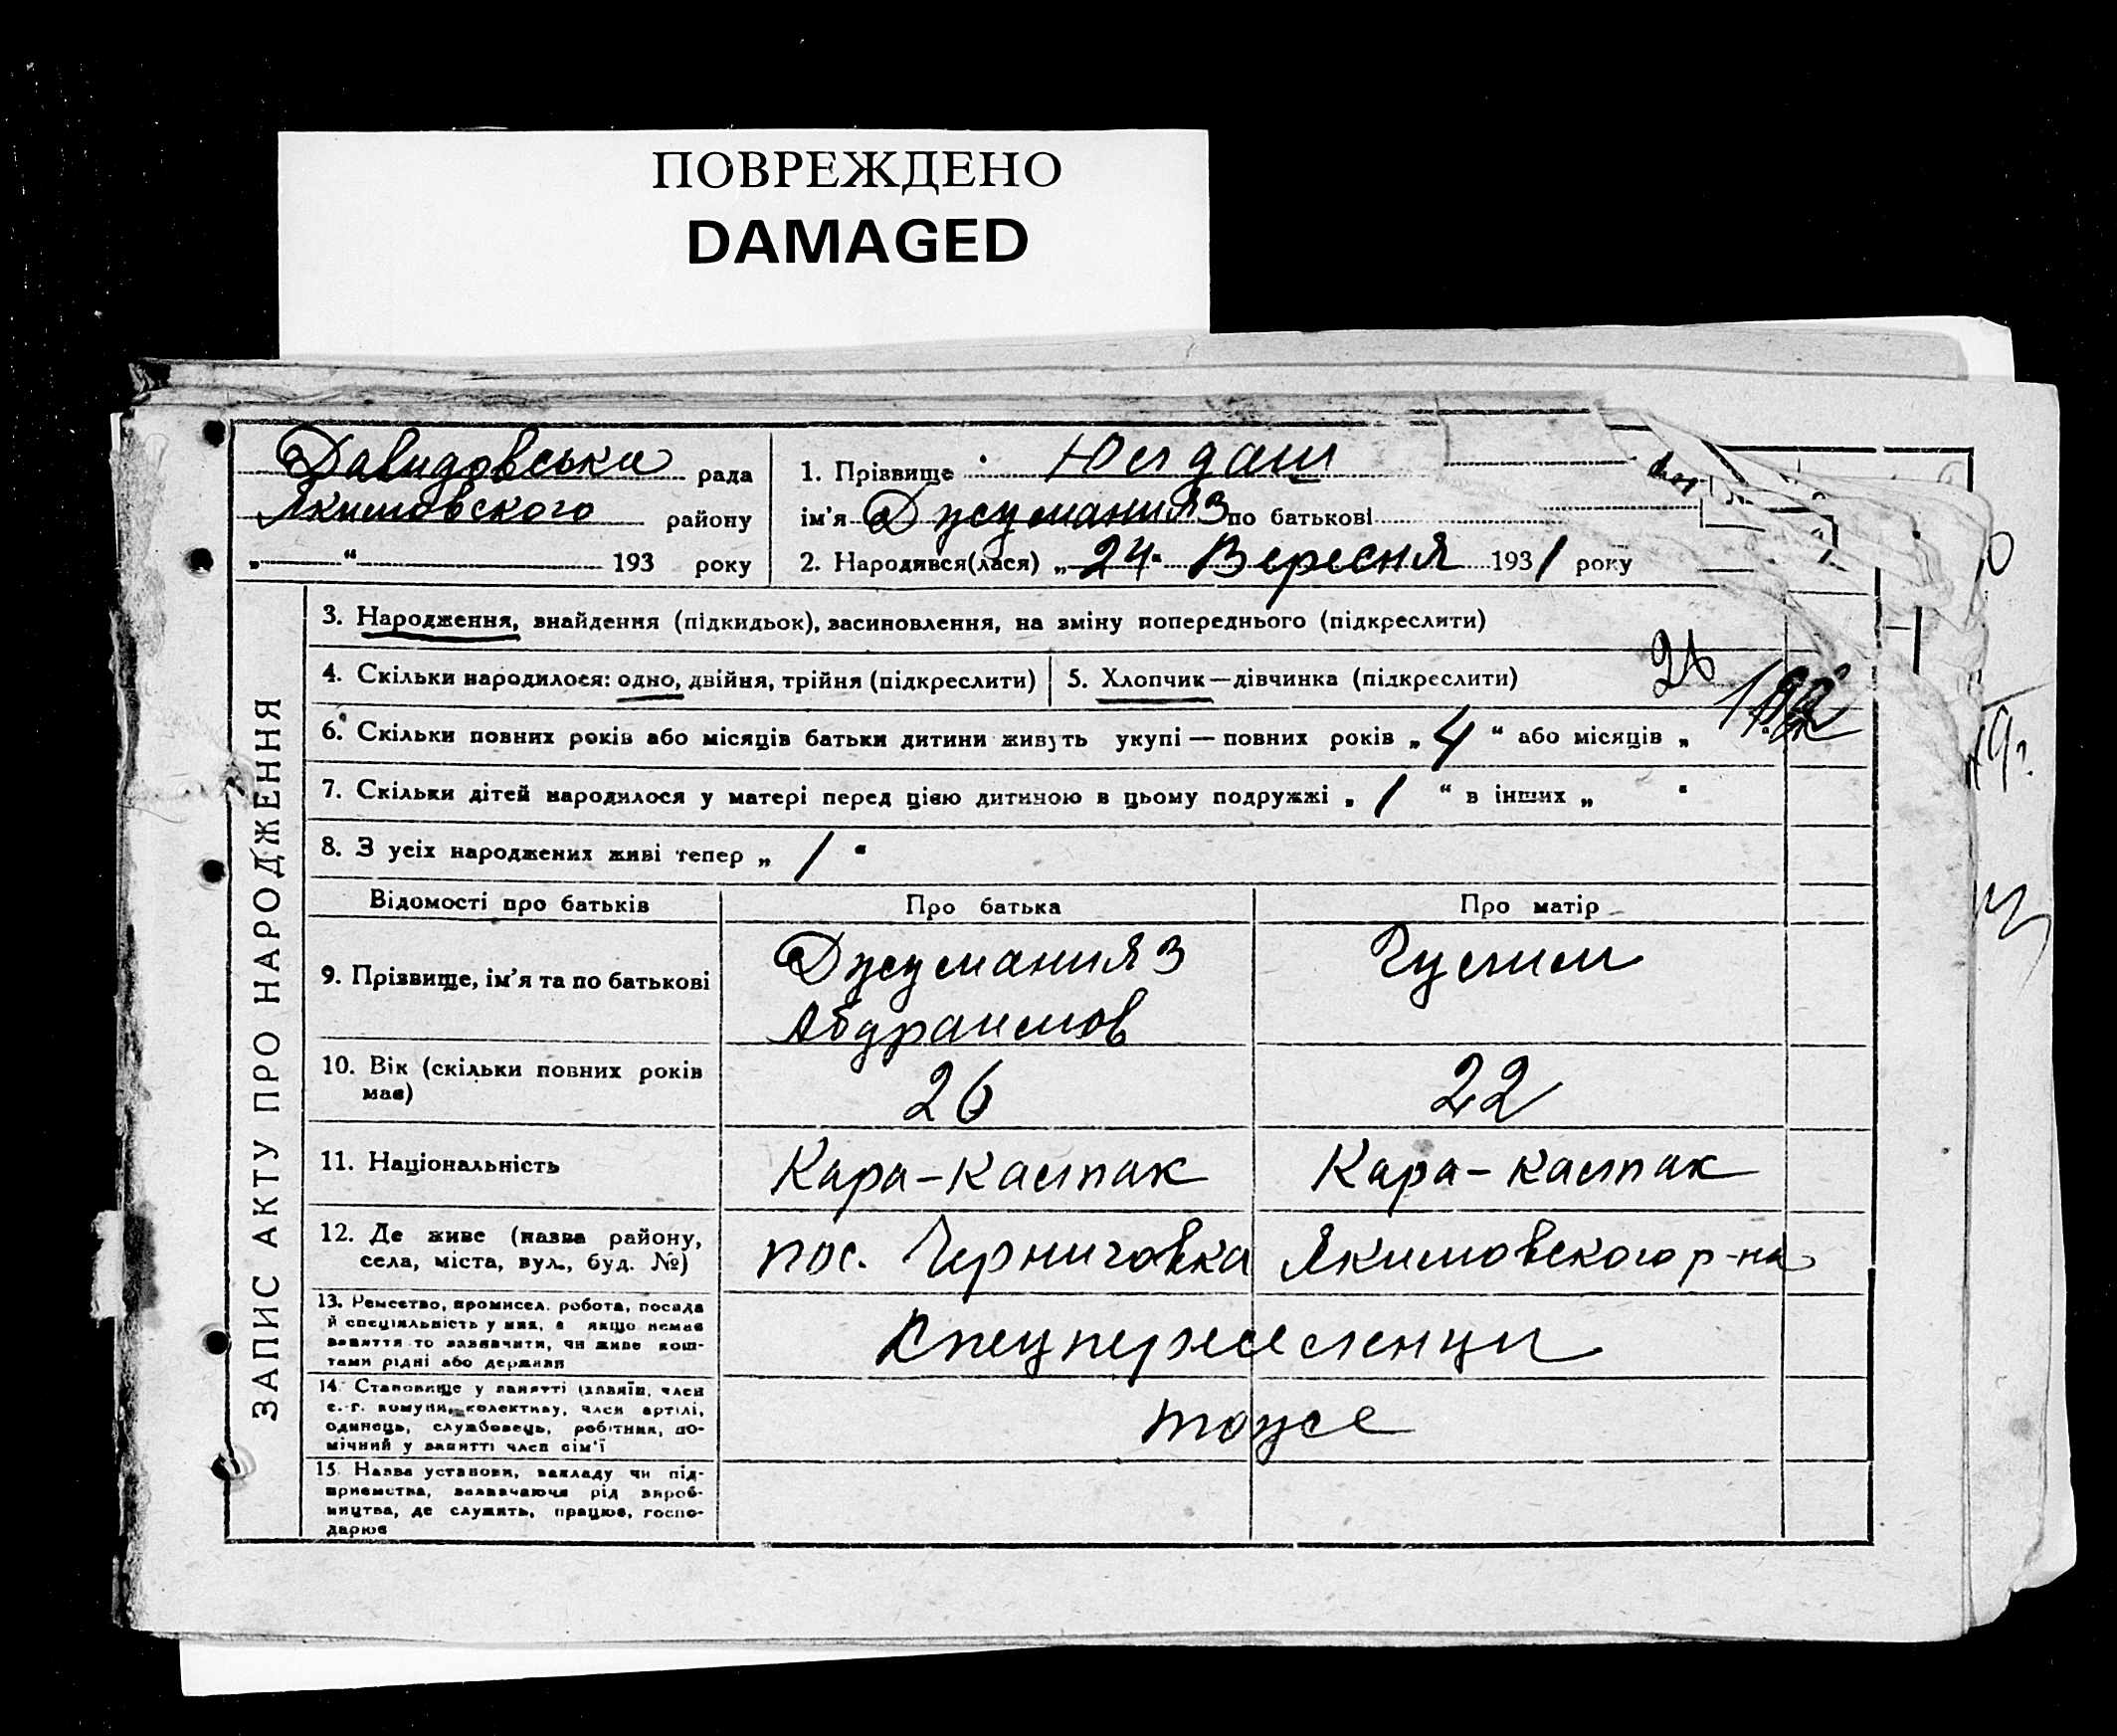 ПОВРЕЖДЕНО
DAMAGED
Давидовська рада
Якимовского району
„ “ 193 року
1. Прізвище Юлдаш
ім'я Джуманияз по батькові
2. Народився(лася) „24“ Вересня 1931 року
ЗАПИС АКТУ ПРО НАРОДЖЕННЯ
3. Народження, знайдення (підкидьок), засиновлення, на зміну попереднього (підкреслити)
4. Скільки народилося: одно, двійня, трійня (підкреслити)
5. Хлопчик—дівчинка (підкреслити)
6. Скільки повних років або місяців батьки дитини живуть укупі — повних років „4“ або місяців „
7. Скільки дітей народилося у матері перед цією дитиною в цьому подружжі „1“ в інших „ “
8. З усіх народжених живі тепер „1“
Відомості про батьків Про батька Про матір
9. Прізвище, ім'я та по батькові Джуманияз Гулим
Абдраимов
10. Вік (скільки повних років має) 26 22
11. Національність Кара-Калпак Кара-калпак
12. Де живе (назва району, села, міста, вул., буд. №) пос. Черниговка Якимовского р-на
13. Ремество, промисел, робота, посада
й спеціяльність у них, а якщо немає
заняття то зазначити, чи живе кош-
тами рідні або держави
Спецпереселенци
14. Становище у занятті (хазяїн, член
с.-г. комуни, колективу, член артілі,
одинець, службовець, робітник, до-
мічний у занятті член сім'ї
тоже
15. Назва установи, закладу чи під-
приємства, зазначаючи рід вироб-
ництва, де служить, працює, госпо-
дарює